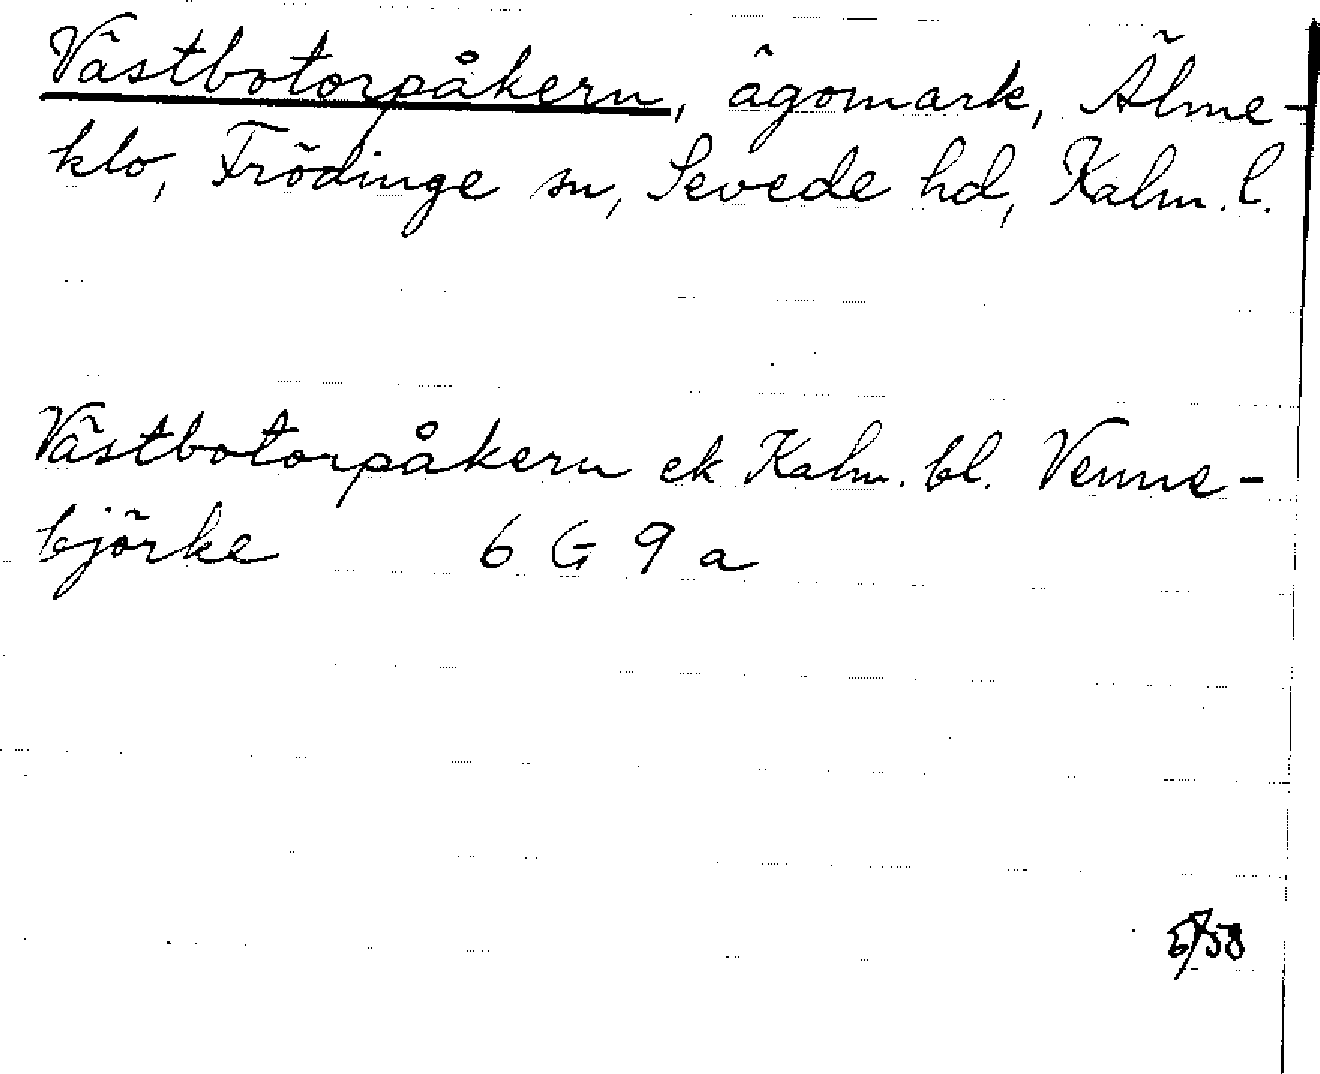 Västbotorpåkern, ägomark, Älme-
klo, Frödinge sn, Sevede hd, Kalm. l.
Västbotorpåkern ek Kalm. bl. Venne-
björke 6 G 9 a